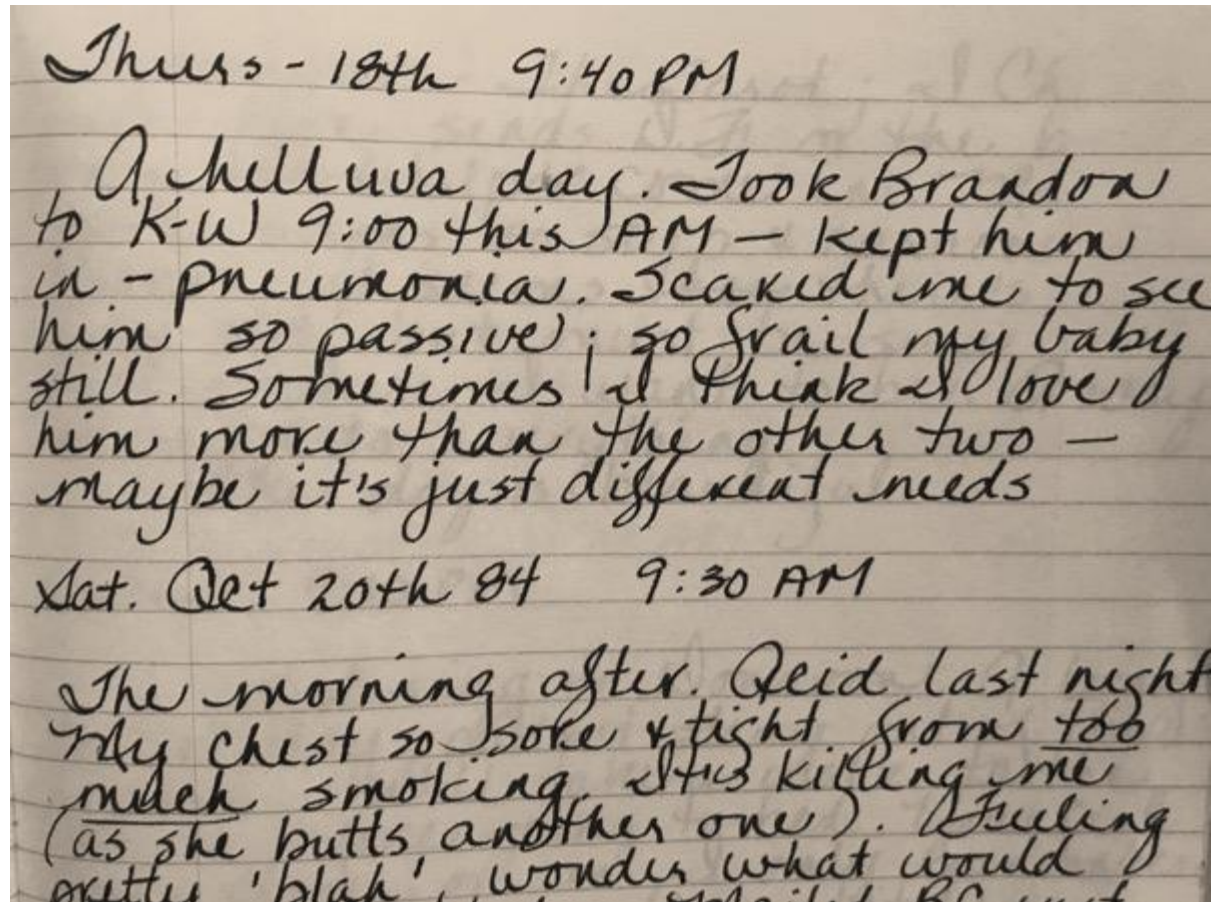 Thurs - 18th 9:40 PM
A helluva day. Took Brandon
to K-W 9:00 this AM — kept him
in - pneumonia. Scared me to see
him so passive; so frail my baby
still. Sometimes I think I love
him more than the other two —
maybe it's just different needs
Sat. Oct 20th 84 9:30 AM
The morning after. last night
My chest so sore & tight from too
much smoking. It is killing me
(as she butts another one). Feeling
pretty 'blah', wonder what would